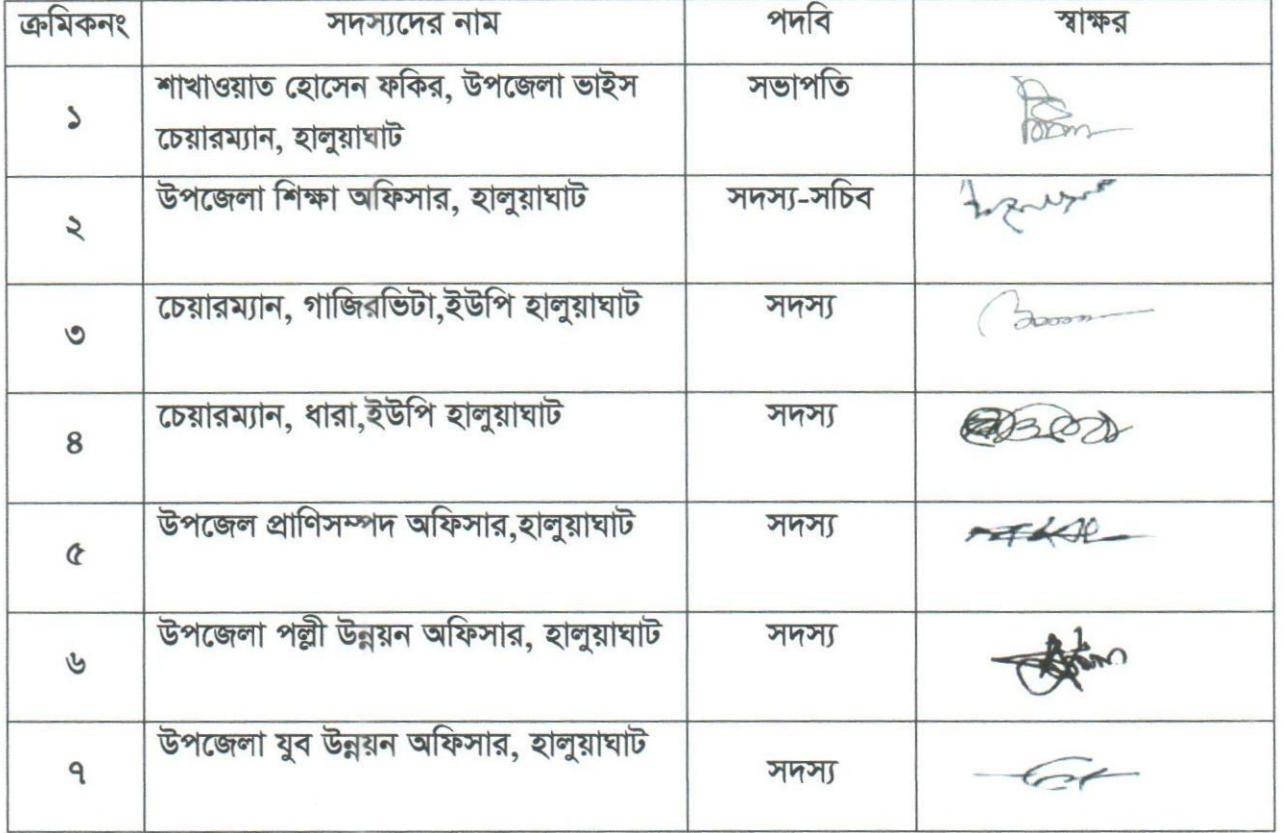 ক্রমিকনং সদস্যদের নাম পদবি স্বাক্ষর
১ শাখাওয়াত হোসেন ফকির, উপজেলা ভাইস সভাপতি
চেয়ারম্যান, হালুয়াঘাট
২ উপজেলা শিক্ষা অফিসার, হালুয়াঘাট সদস্য-সচিব
৩ চেয়ারম্যান, গাজিরভিটা,ইউপি হালুয়াঘাট সদস্য
৪ চেয়ারম্যান, ধারা,ইউপি হালুয়াঘাট সদস্য
৫ উপজেল প্রাণিসম্পদ অফিসার,হালুয়াঘাট সদস্য
৬ উপজেলা পল্লী উন্নয়ন অফিসার, হালুয়াঘাট সদস্য
৭ উপজেলা যুব উন্নয়ন অফিসার, হালুয়াঘাট সদস্য